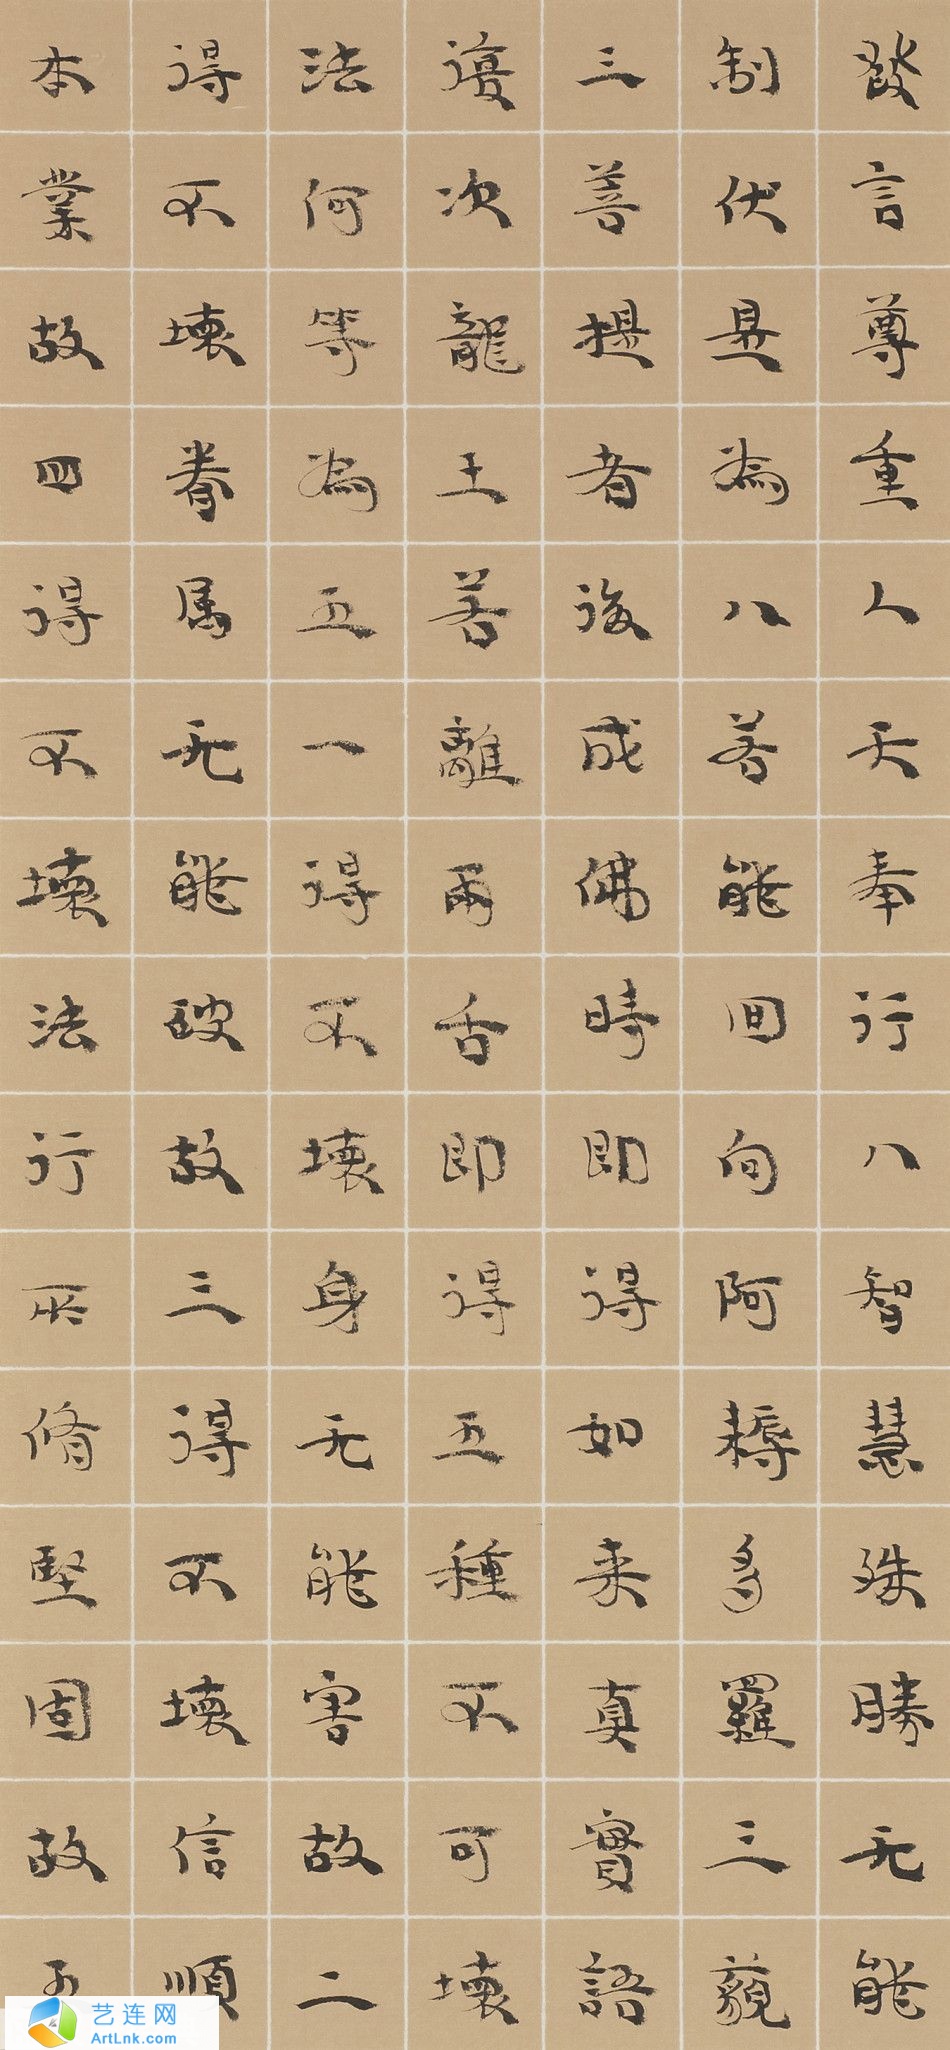 發言尊重人天奉行八智慧殊勝无能
制伏是為八若能回向阿耨多羅三藐
三菩提者後成佛時即得如来真實語
復次龍王若離兩舌即得五種不可壞
法何等為五一得不壞身无能害故二
得不壞眷属无能破故三得不壞信順
本業故四得不壞法行所修堅固故五
艺连网
ArtLnk.com